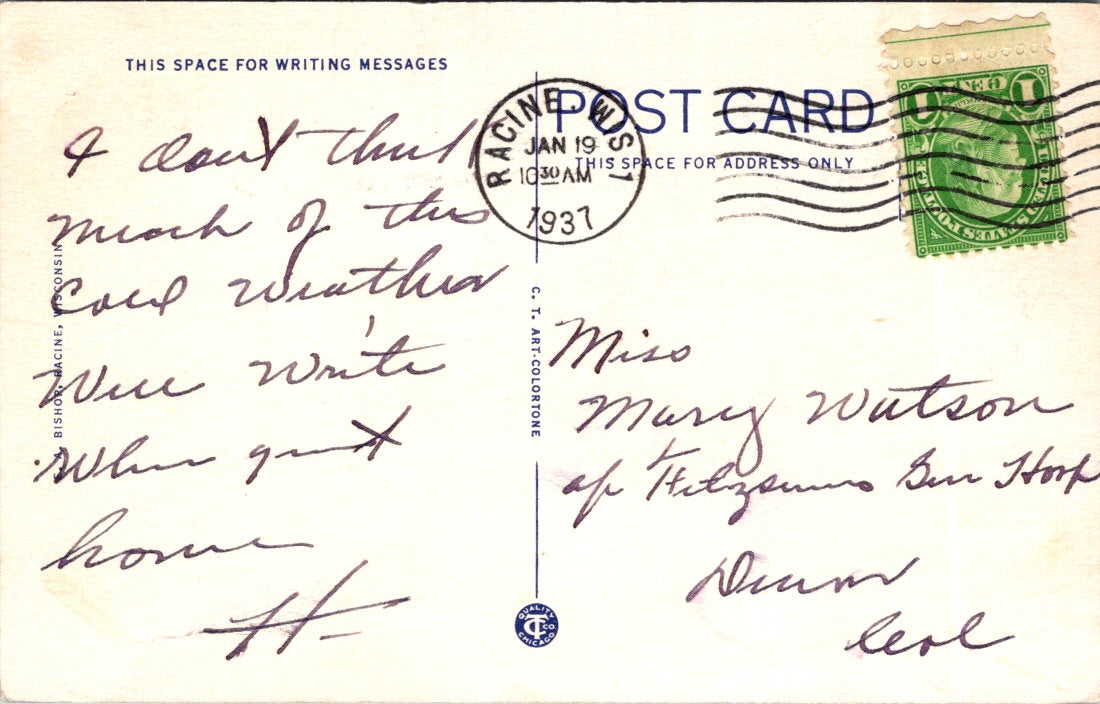 THIS SPACE FOR WRITING MESSAGES
POST CARD
THIS SPACE FOR ADDRESS ONLY
RACINE WIS 1
JAN 19
10 30 AM
1937
1 1
I don't think
much of this
Cold Weather
Will Write
When get
home
H-
BISHOP, RACINE, WISCONSIN
C. T. ART-COLORTONE
QUALITY
CT CO
CHICAGO
Miss
Mary Watson
Fitzsimons Gen Hosp
Denver
Col